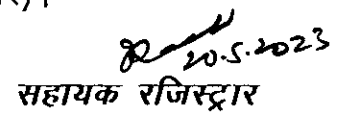 20.5.2023
सहायक रजिस्ट्रार